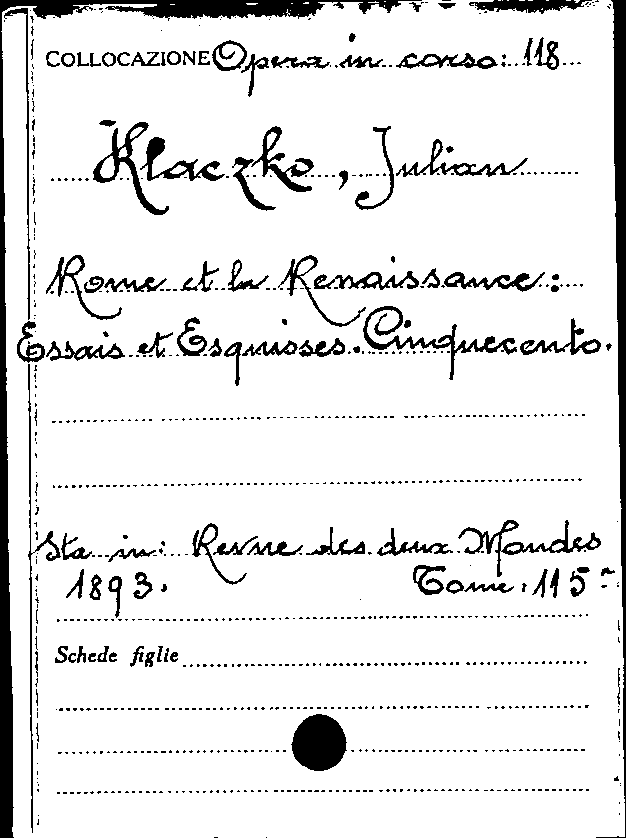 COLLOCAZIONE Opera in corso: 118
Klaczko, Julian
Rome et la Renaissance:
Essais et Esquisses. Cinquecento.
Sta in: Revue des deux Mondes
1893. Tome. 115
Schede figlie